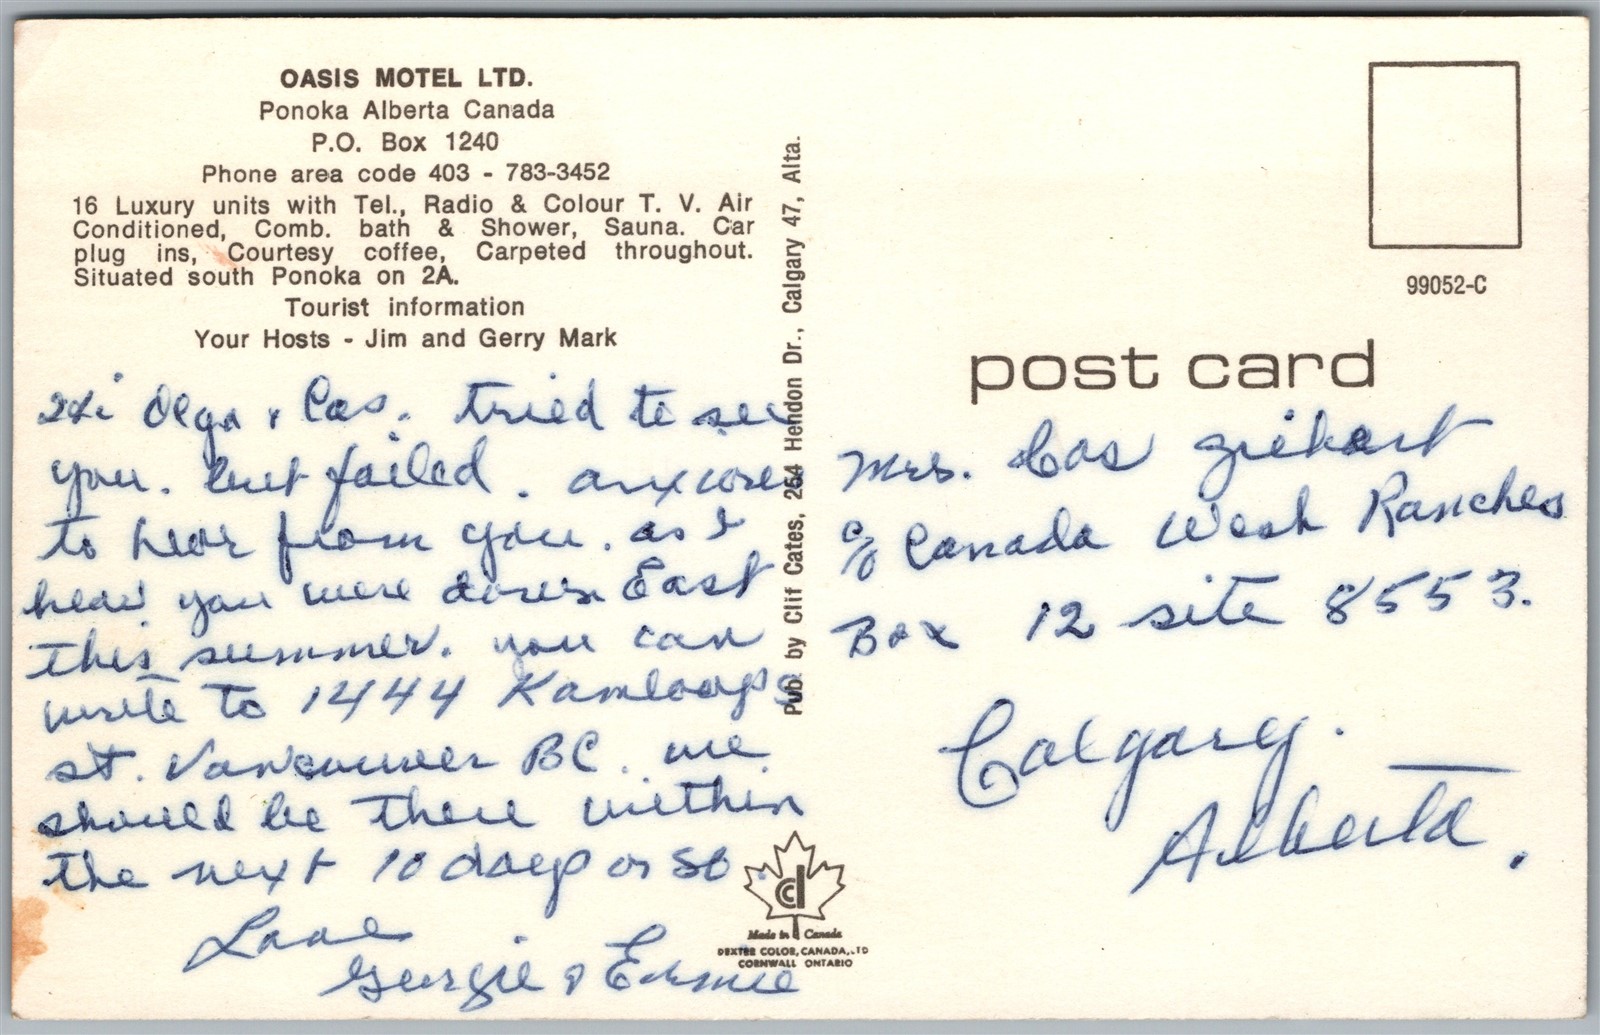 OASIS MOTEL LTD.
Ponoka Alberta Canada
P.O. Box 1240
Phone area code 403 - 783-3452
16 Luxury units with Tel., Radio & Colour T. V. Air
Conditioned, Comb. bath & Shower, Sauna. Car
plug ins, Courtesy coffee, Carpeted throughout.
Situated south Ponoka on 2A.
Tourist information
Your Hosts - Jim and Gerry Mark
Hi Olga & Cas. tried to see
you. but failed. anxious
to hear from you. as I
hear you were down East
this summer. you can
write to 1444 Kamloops
st. Vancouver BC. we
should be there within
the next 10 days or so.
Love
Georgie & Ernie
Pub. by Clif Cates, 254 Hendon Dr., Calgary 47, Alta.
99052-C
post card
Mrs. Cas
c/o Canada West Ranches
Box 12 site 8553.
Calgary.
Alberta.
Made in Canada
DEXTER COLOR, CANADA, LTD
CORNWALL ONTARIO